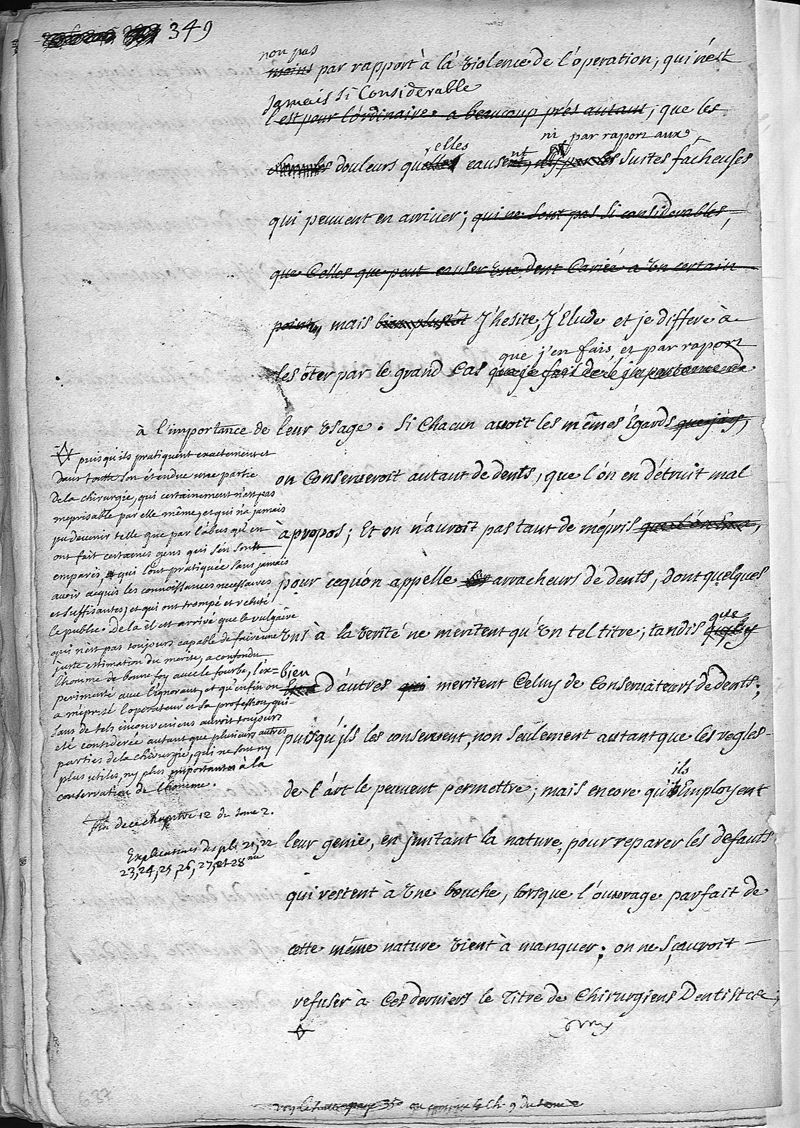 349
non pas
moins par rapport à la violence de l'operation, qui n'est
Jamais si Considerable
l'est pour l'ordinaire a beaucoup près autant, que les
elles ni par raport aux
douleurs que causent, suites fâcheuses
qui peuvent en arriver; qui ne sont pas si considerables,
que Celles que peut causer Une dent Cariée a Un certain
point, mais bien plustôt J'hesite, J'Elude et je differe à
que j'en fais, et par raport
les ôter par le grand Cas que je fais
à l'importance de leur Usage. Si Chacun avoit les mêmes Egards que j'ay,
on Conserveroit autant de dents, que l'on en détruit mal
àpropos; Et on n'auroit pas tant de mépris
pour cequ'on appelle arracheurs de dents, dont quelques
que
Uns à la verité ne meritent qu'Un tel titre; tandis
bien
d'autres qui meritent Celuy de Conservateurs de dents;
puisqu'ils les conservent, non seulement autant que les regles
ils
de l'art le peuvent permettre; mais encore qu' Employent
leur genie, en jmitant la nature, pour reparer les defauts
qui restent à Une bouche, lorsque l'ouvrage parfait de
cette même nature vient à manquer; on ne sçauroit
refuser à Ces derniers le Titre de Chirurgiens Dentistes
puisqu'ils pratiquent exactement et
dans toutte son étendue une partie
de la chirurgie, qui certainement n'est pas
meprisable par elle même, et qui n'a jamais
pu devenir telle que par l'abus qu'en
ont fait certaines gens qui s'en sont
emparés qui l'ont pratiquée sans jamais
avoir acquis les connoissances necessaires
et suffisantes; et qui ont trompé et rebuté
le public. De la il est arrivé que le vulgaire
qui n'est pas toujours capable de faire une
juste estimation du merite, a confondu
l'homme de bonne foy avec le fourbe, l'ex=
perimenté avec l'ignorant, et qu'enfin on
a méprisé l'operateur et sa profession, qui
sans de tels inconveniens auroit toujours
eté considerée autant que plusieurs autres
parties de la chirurgie, qui ne sont ny
plus utiles, ny plus importantes à la
conservation de l'homme.
fin de ce chapitre 12 du tome 2.
Explications des pl: 21, 22
23, 24, 25, 26, 27, et 28
637